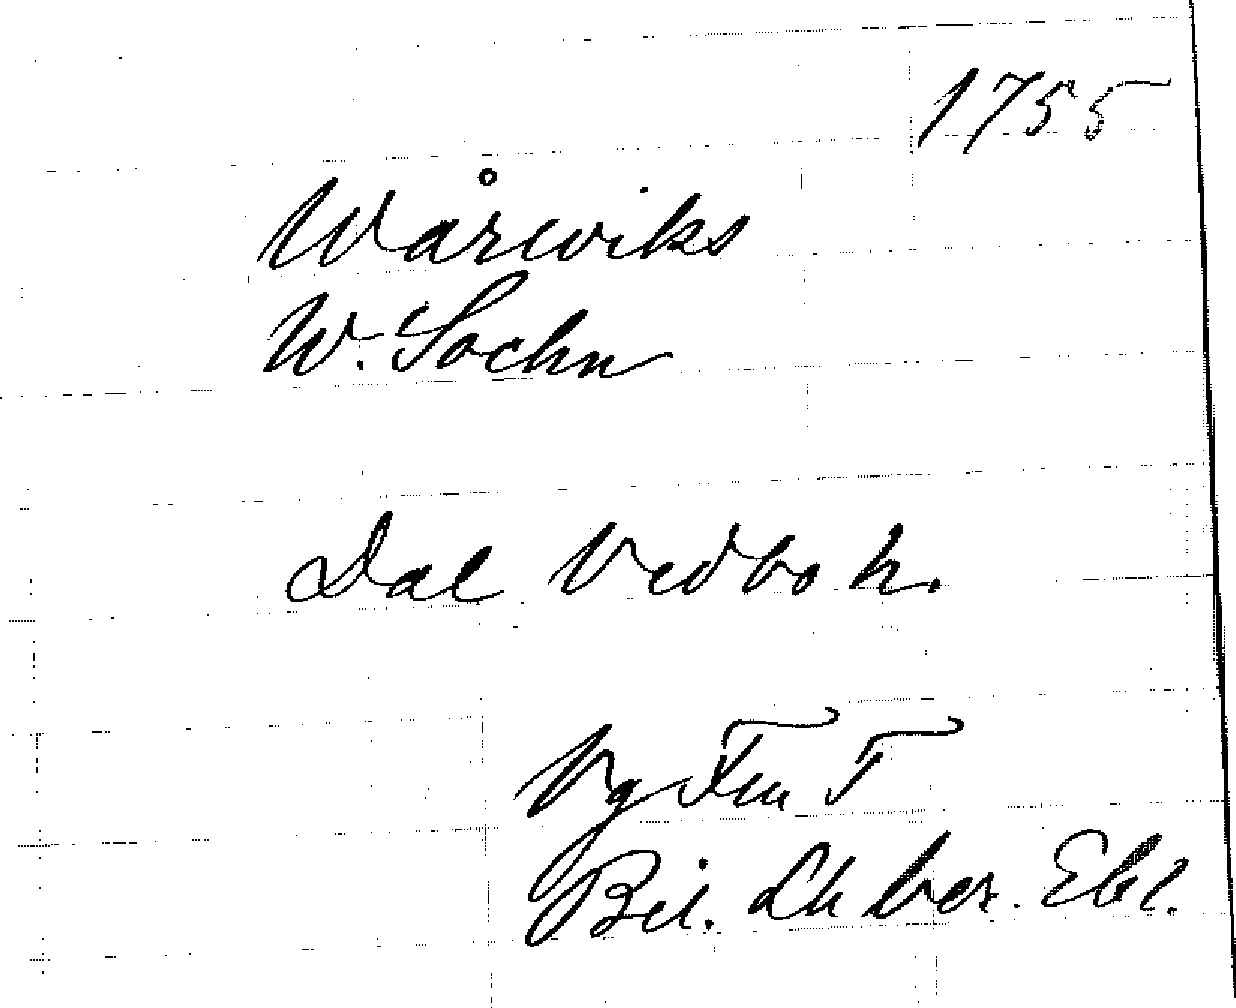 1755
Wårwiks
W. Sochn
Dal Vedbo h.
Vg Fru T
Bil. Lh ber. Ebl.